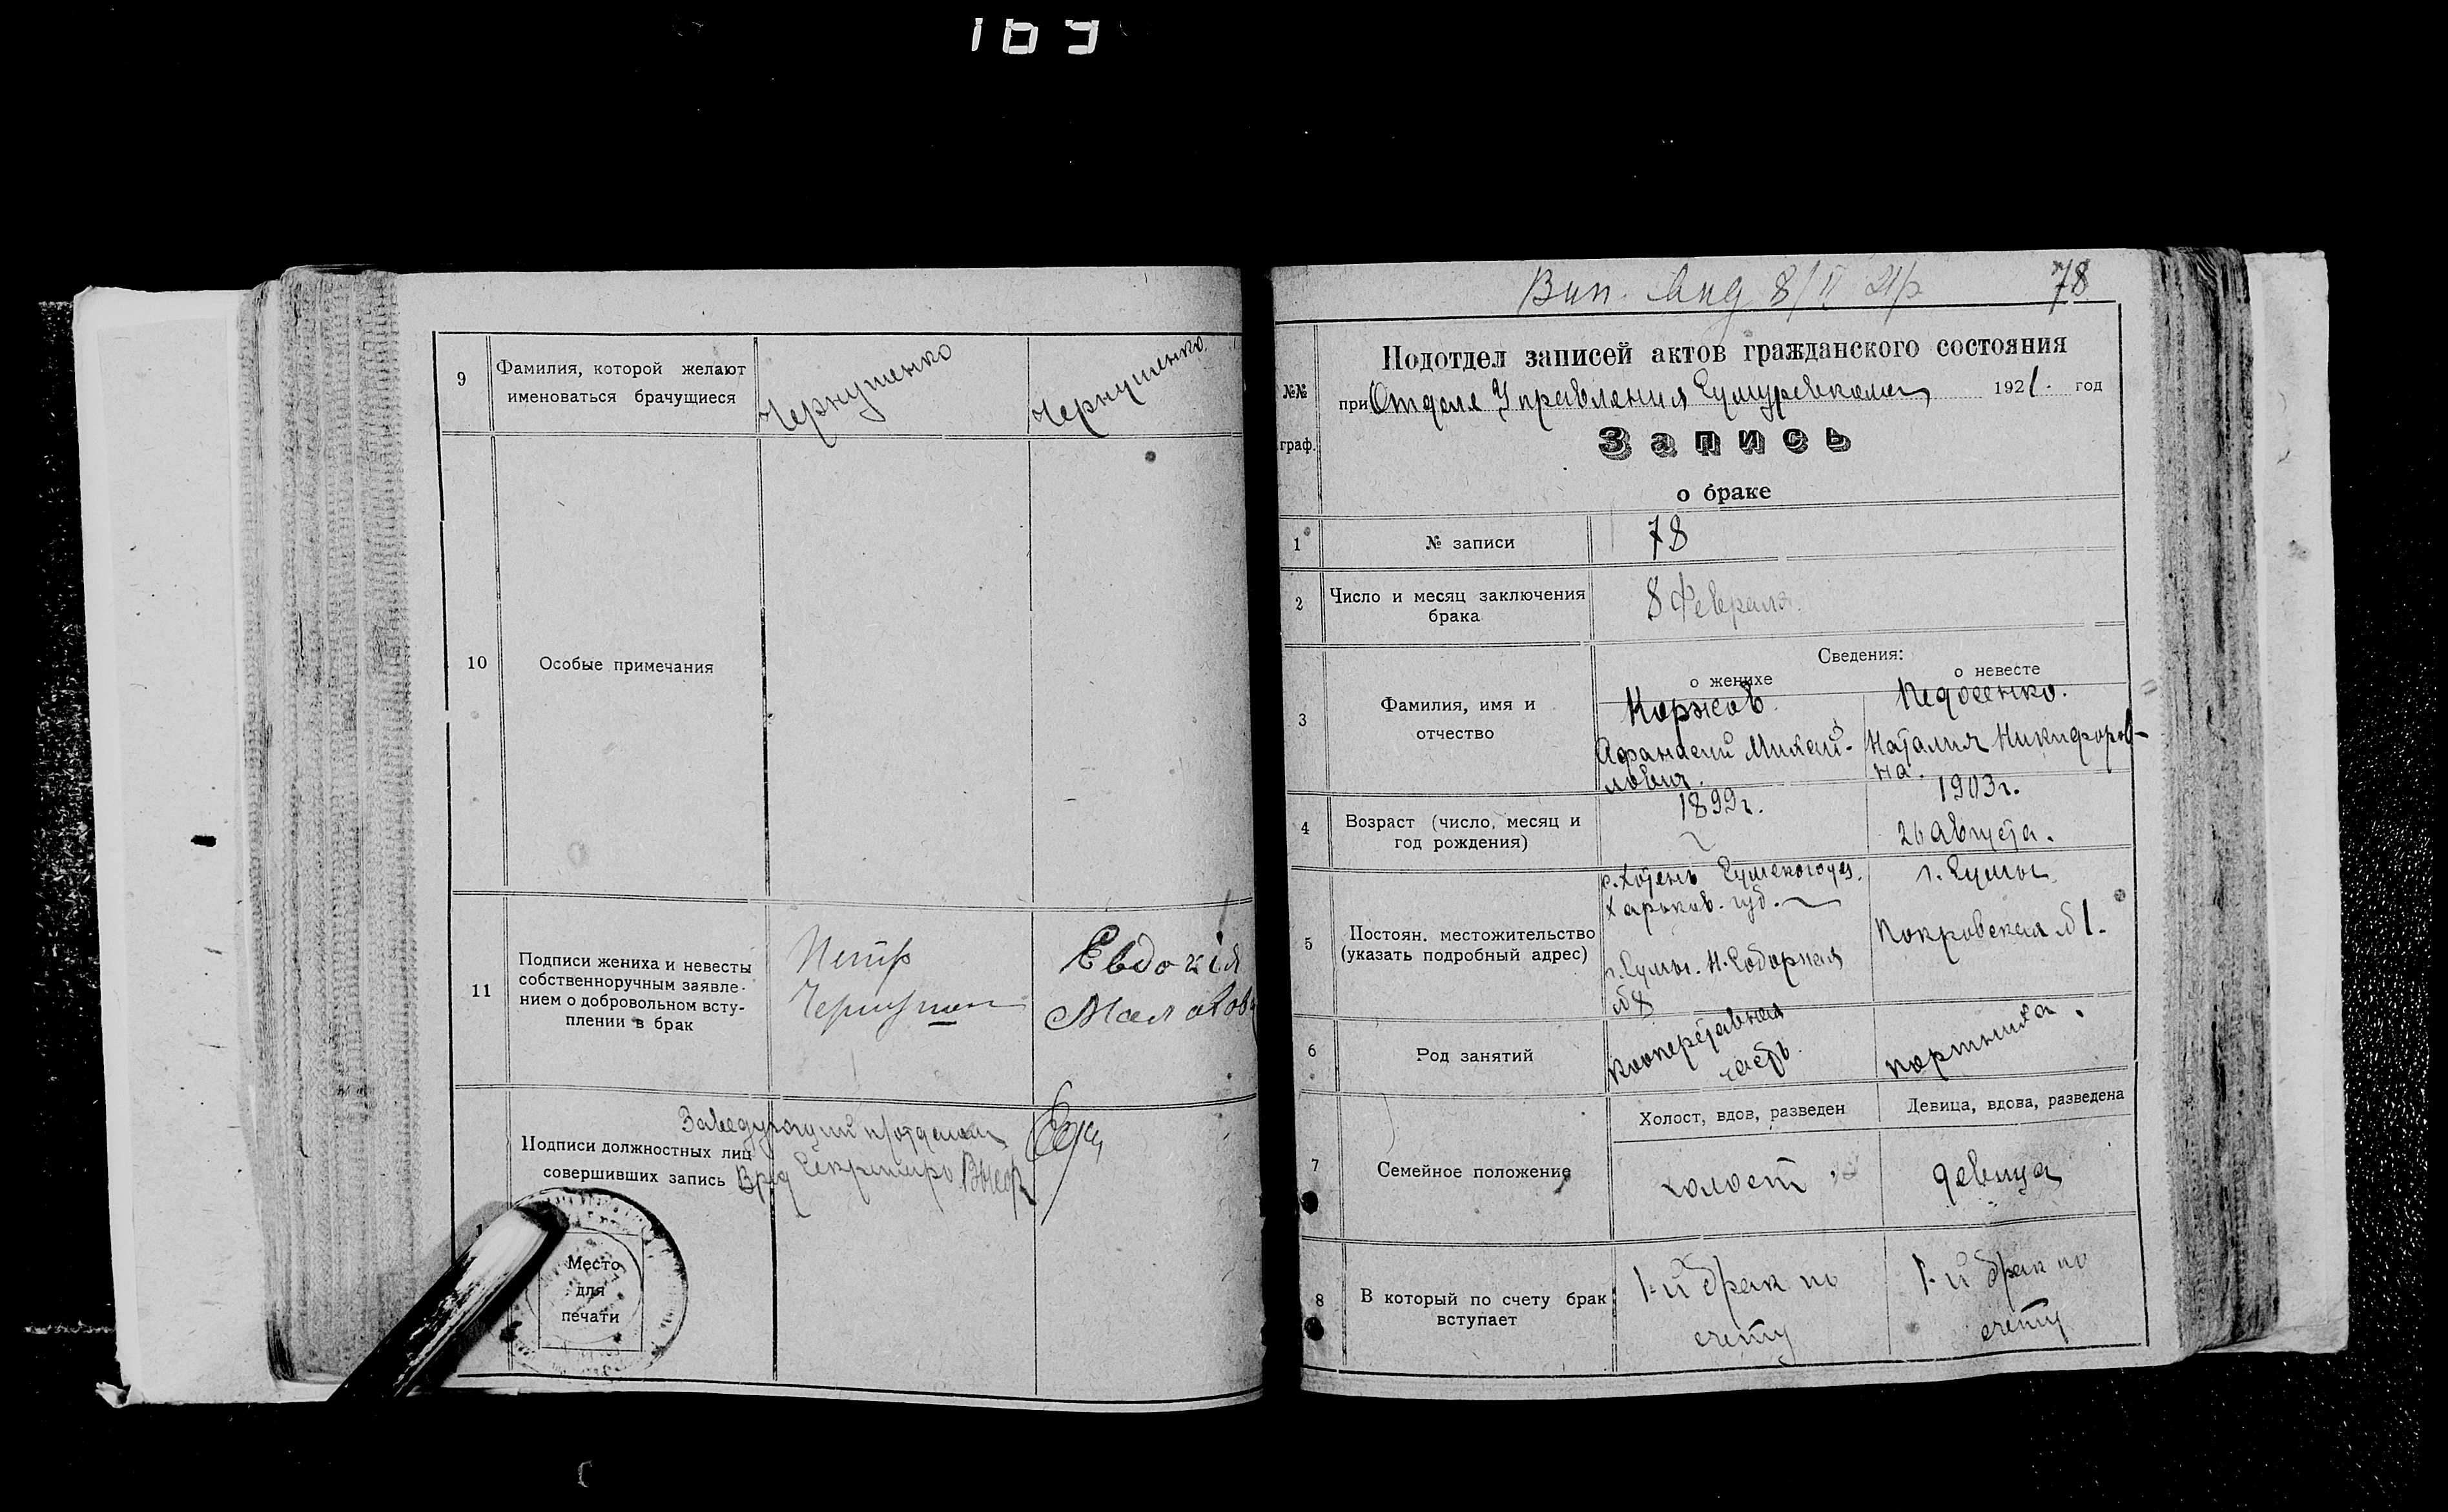 169
9
Фамилия, которой желают
именоваться брачущиеся
Чернушенко
Чернушенко
10
Особые примечания
11
Подписи жениха и невесты
собственноручным заявле-
нием о добровольном всту-
плении в брак
Петр
Евдокія
Заведующий п/отделом
Подписи должностных лиц
совершивших запись
Врид Секретаря
Место
для
печати
Вып. 8/II 21 г.
78
№№
граф.
Подотдел записей актов гражданского состояния
при Отделе Управления Сумуревкома 1921 год
Запись
о браке
1
№ записи
78
2
Число и месяц заключения
брака
8 февраля.
Сведения:
о женихе
о невесте
3
Фамилия, имя и
отчество
Коржов
Афанасий Михай-
лович.
Наталия Никифоров-
на.
4
Возраст (число, месяц и
год рождения)
1899 г.
1903 г.
26 Августа.
5
Постоян. местожительство
(указать подробный адрес)
с. Хотень Сумского уез.
Харьков. губ.
г. Сумы. Н. Соборная
№ 8
г. Сумы
Покровская № 1.
6
Род занятий
часть.
портниха.
7
Семейное положение
Холост, вдов, разведен
Девица, вдова, разведена
холост
девица
8
В который по счету брак
вступает
1-й брак по
счету
1-й брак по
счету